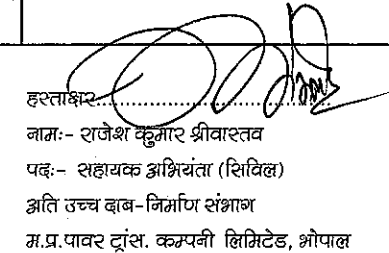 हस्ताक्षर..............................
नामः- राजेश कुमार श्रीवास्तव
पदः- सहायक अभियंता (सिविल)
अति उच्च दाब-निर्माण संभाग
म.प्र.पावर ट्रांस. कम्पनी लिमिटेड, भोपाल